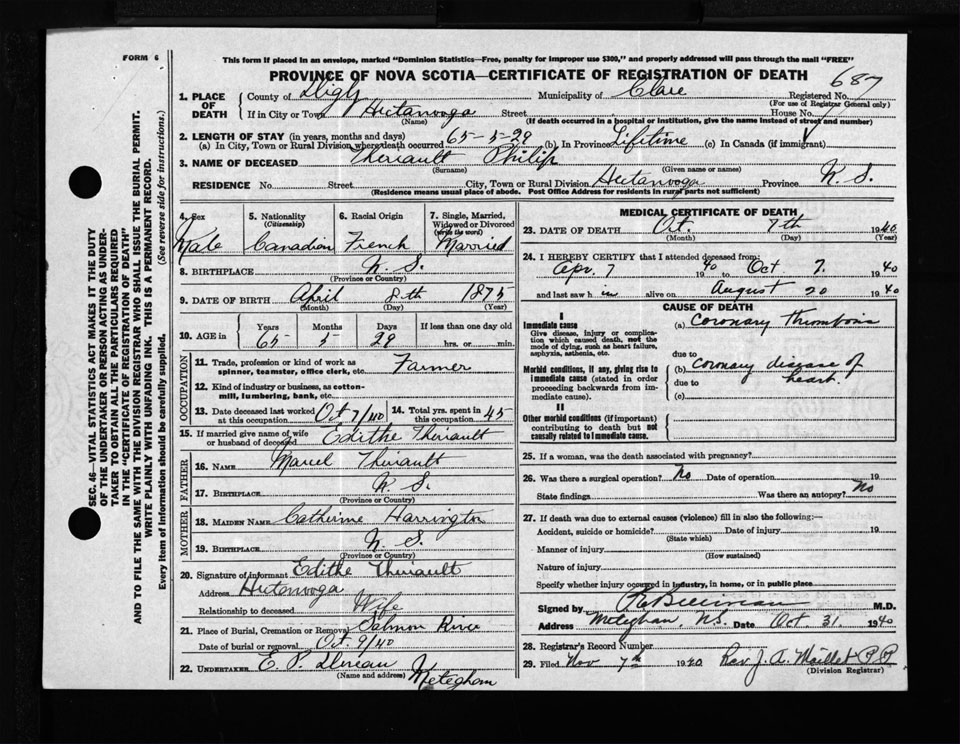 FORM 6
This form if placed in an envelope, marked "Dominion Statistics—Free, penalty for improper use $300," and properly addressed will pass through the mail "FREE"
PROVINCE OF NOVA SCOTIA—CERTIFICATE OF REGISTRATION OF DEATH
687
1. PLACE OF DEATH
County of Digby Municipality of Clare Registered No.
(For use of Registrar General only)
If in City or Town Hectanooga Street House No.
(Name) (If death occurred in a hospital or institution, give the name instead of street and number)
2. LENGTH OF STAY (in years, months and days)
(a) In City, Town or Rural Division where death occurred 65-5-29 (b) In Province Lifetime (c) In Canada (if immigrant)
3. NAME OF DECEASED Theriault Philip
(Surname) (Given name or names)
RESIDENCE No. Street City, Town or Rural Division Hectanooga Province N. S.
(Residence means usual place of abode. Post Office Address for residents in rural parts not sufficient)
SEC. 46—VITAL STATISTICS ACT MAKES IT THE DUTY
OF THE UNDERTAKER OR PERSON ACTING AS UNDER-
TAKER TO OBTAIN ALL THE PARTICULARS REQUIRED
IN THE "CERTIFICATE OF REGISTRATION OF DEATH"
AND TO FILE THE SAME WITH THE DIVISION REGISTRAR WHO SHALL ISSUE THE BURIAL PERMIT.
WRITE PLAINLY WITH UNFADING INK. THIS IS A PERMANENT RECORD.
Every item of information should be carefully supplied. (See reverse side for instructions.)
4. Sex
Male
5. Nationality
(Citizenship)
Canadian
6. Racial Origin
French
7. Single, Married,
Widowed or Divorced
(write the word)
Married
8. BIRTHPLACE N. S.
(Province or Country)
9. DATE OF BIRTH April 8th 1875
(Month) (Day) (Year)
10. AGE in Years Months Days If less than one day old
65 5 29 hrs. or min.
OCCUPATION
11. Trade, profession or kind of work as
spinner, teamster, office clerk, etc. Farmer
12. Kind of industry or business, as cotton-
mill, lumbering, bank, etc.
13. Date deceased last worked
at this occupation Oct 7/40
14. Total yrs. spent in
this occupation 45
15. If married give name of wife
or husband of deceased Edithe Theriault
FATHER
16. NAME Marcel Theriault
17. BIRTHPLACE N. S.
(Province or Country)
MOTHER
18. MAIDEN NAME Catherine Harrington
19. BIRTHPLACE N. S.
(Province or Country)
20. Signature of informant Edithe Theriault
Address Hectanooga
Relationship to deceased Wife
21. Place of Burial, Cremation or Removal Salmon River
Date of burial or removal Oct 9/40
22. UNDERTAKER E. P. Meteghan
(Name and address)
MEDICAL CERTIFICATE OF DEATH
23. DATE OF DEATH Oct. 7th 1940
(Month) (Day) (Year)
24. I HEREBY CERTIFY that I attended deceased from:
Apr. 7 1940 to Oct 7. 1940
and last saw him alive on August 20 1940
CAUSE OF DEATH
I
Immediate cause
Give disease, injury or complica-
tion which caused death, not the
mode of dying, such as heart failure,
asphyxia, asthenia, etc.
(a) Coronary Thrombosis
due to
Morbid conditions, if any, giving rise to
immediate cause (stated in order
proceeding backwards from im-
mediate cause).
(b) Coronary disease of
due to heart.
(c)
II
Other morbid conditions (if important)
contributing to death but not
causally related to immediate cause.
25. If a woman, was the death associated with pregnancy?
26. Was there a surgical operation? No Date of operation 19
State findings Was there an autopsy? No
27. If death was due to external causes (violence) fill in also the following:—
Accident, suicide or homicide? Date of injury 19
(State which)
Manner of injury
(How sustained)
Nature of injury
Specify whether injury occurred in industry, in home, or in public place
Signed by M.D.
Address Meteghan, N.S. Date Oct 31. 1940
28. Registrar's Record Number
29. Filed Nov 7th 1940 Rev. J. A. Maillet P.P.
(Division Registrar)